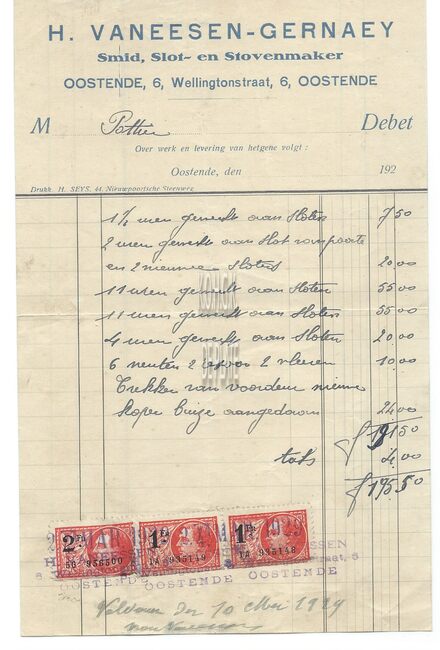 H. VANEESEN-GERNAEY
Smid, Slot- en Stovenmaker
OOSTENDE, 6, Wellingtonstraat, 6, OOSTENDE
M Debet
Over werk en levering van hetgene volgt :
Oostende, den 192
Drukk. H. SEYS, 44, Nieuwpoortsche Steenweg
1 1/2 uren gewerkt aan sloten 7.50
2 uren gewerkt aan slot van poorte
en 2 nieuwe sloters 20.00
11 uren gewerkt aan sloten 55.00
11 uren gewerkt aan sloten 55.00
4 uren gewerkt aan sloten 20.00
6 neuten 2 2 vleeren 10.00
Trekker van voordeur nieuwe
koper buize aangedaan 24.00
191.50
taks 4.00
195.50
2 Fr 1 Fr 1 Fr
50 936500 1A 935149 1A 935148
OOSTENDE OOSTENDE OOSTENDE
Voldaan den 10 Mei 1929